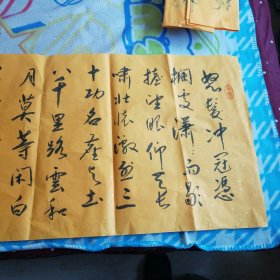 怒髮冲冠憑
欄處潇雨歇
抬望眼仰天长
啸壮懷激烈三
十功名塵与土
八千里路雲和
月莫等闲白